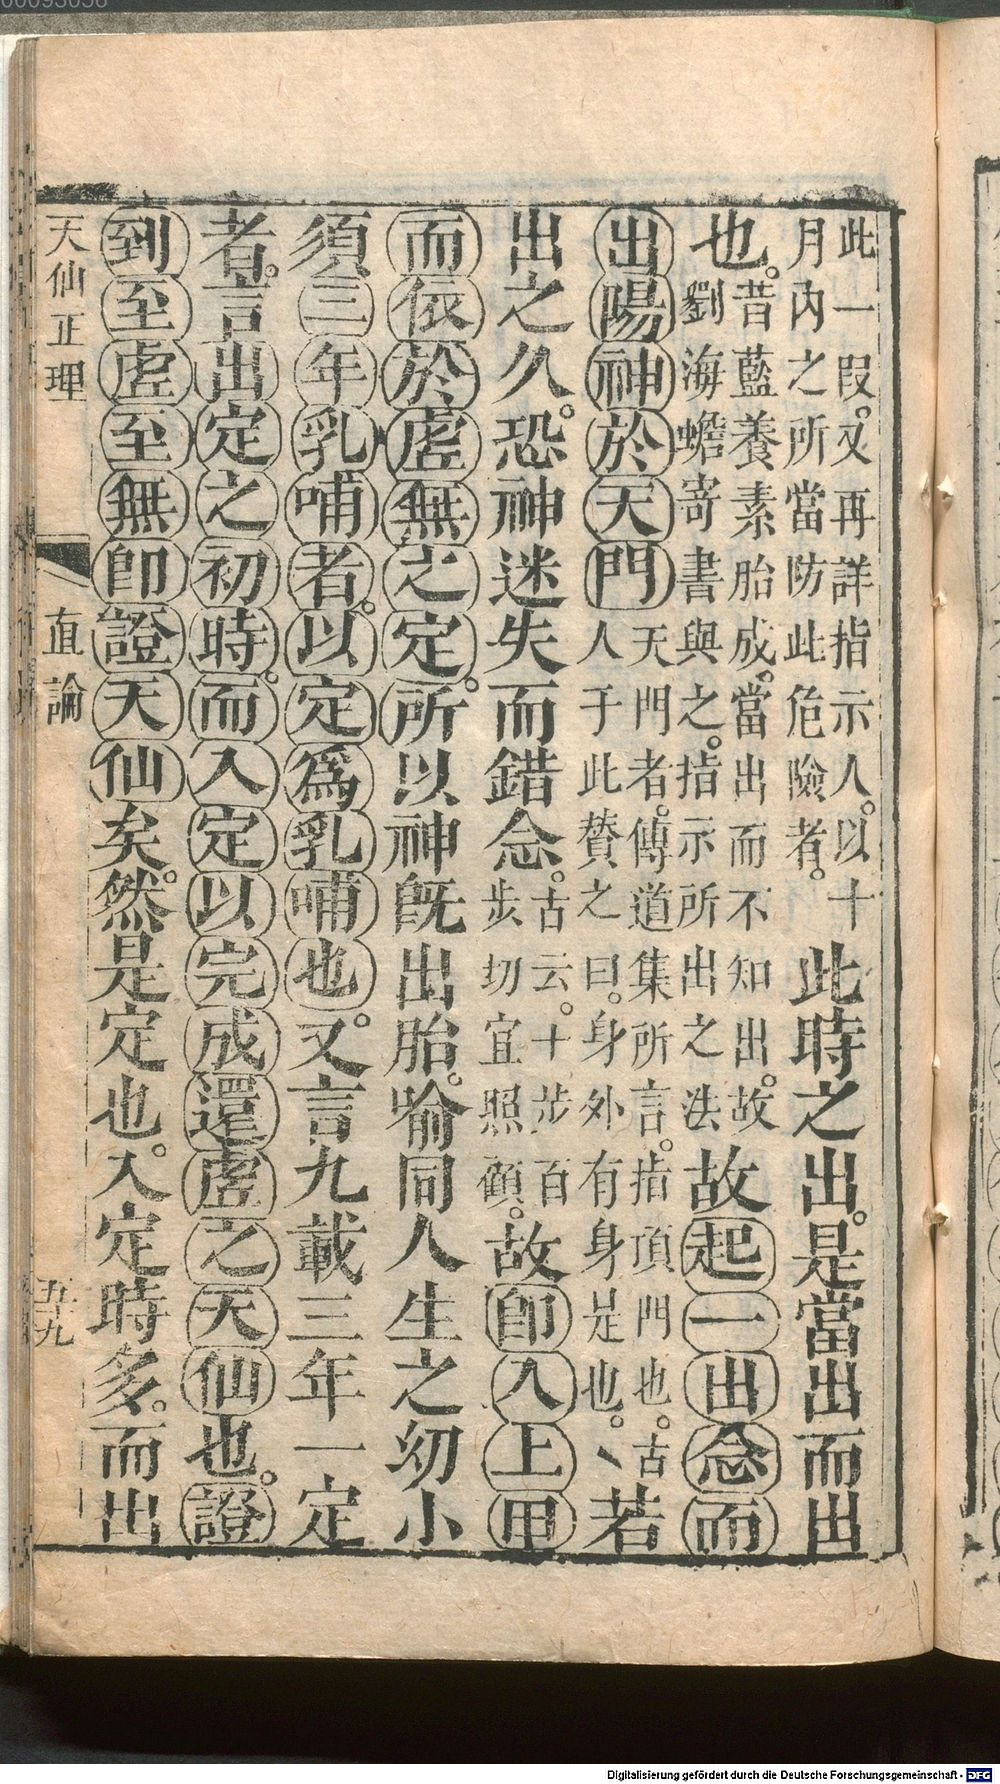 00093056
此一叚。又再詳指示人。以十
月內之所當防此危險者。
此時之出。是當出而出
也。
昔藍養素胎成。當出而不知出。故
劉海蟾寄書與之。指示所出之法
故起一出念而
出陽神於天門
天門者。傳道集所言。指頂門也。古
人于此賛之曰。身外有身是也。丶
若
出之久。恐神迷失而錯念。
古云。十步百
步切宜照顧。
故卽入上田
而依於虛無之定。所以神既出胎。喻同人生之幼小
須三年乳哺者。以定爲乳哺也。又言九載三年一定
者。言出定之初時。而入定以完成還虛之天仙也。證
到至虛至無卽證天仙矣。然是定也。入定時多。而出
天仙正理
直論
五十九
Digitalisierung gefördert durch die Deutsche Forschungsgemeinschaft - DFG